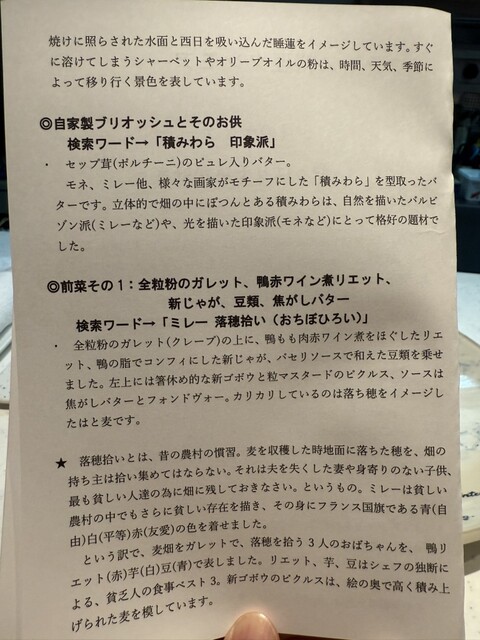 焼けに照らされた水面と西日を吸い込んだ睡蓮をイメージしています。すぐ
に溶けてしまうシャーベットやオリーブオイルの粉は、時間、天気、季節に
よって移り行く景色を表しています。
◎自家製ブリオッシュとそのお供
検索ワード→「積みわら 印象派」
・ セップ茸(ポルチーニ)のピュレ入りバター。
モネ、ミレー他、様々な画家がモチーフにした「積みわら」を型取ったバ
ターです。立体的で畑の中にぽつんとある積みわらは、自然を描いたバルビ
ゾン派(ミレーなど)や、光を描いた印象派(モネなど)にとって格好の題材で
した。
◎前菜その1：全粒粉のガレット、鴨赤ワイン煮リエット、
新じゃが、豆類、焦がしバター
検索ワード→「ミレー 落穂拾い（おちぼひろい）」
・ 全粒粉のガレット(クレープ)の上に、鴨もも肉赤ワイン煮をほぐしたリエ
ット、鴨の脂でコンフィにした新じゃが、パセリソースで和えた豆類を乗せ
ました。左上には箸休め的な新ゴボウと粒マスタードのピクルス、ソースは
焦がしバターとフォンドヴォー。カリカリしているのは落ち穂をイメージし
たはと麦です。
★ 落穂拾いとは、昔の農村の慣習。麦を収穫した時地面に落ちた穂を、畑の
持ち主は拾い集めてはならない。それは夫を失くした妻や身寄りのない子供、
最も貧しい人達の為に畑に残しておきなさい。というもの。ミレーは貧しい
農村の中でもさらに貧しい存在を描き、その身にフランス国旗である青(自
由)白(平等)赤(友愛)の色を着せました。
という訳で、麦畑をガレットで、落穂を拾う3人のおばちゃんを、 鴨リ
エット(赤)芋(白)豆(青)で表しました。リエット、芋、豆はシェフの独断に
よる、貧乏人の食事ベスト3。新ゴボウのピクルスは、絵の奥で高く積み上
げられた麦を模しています。